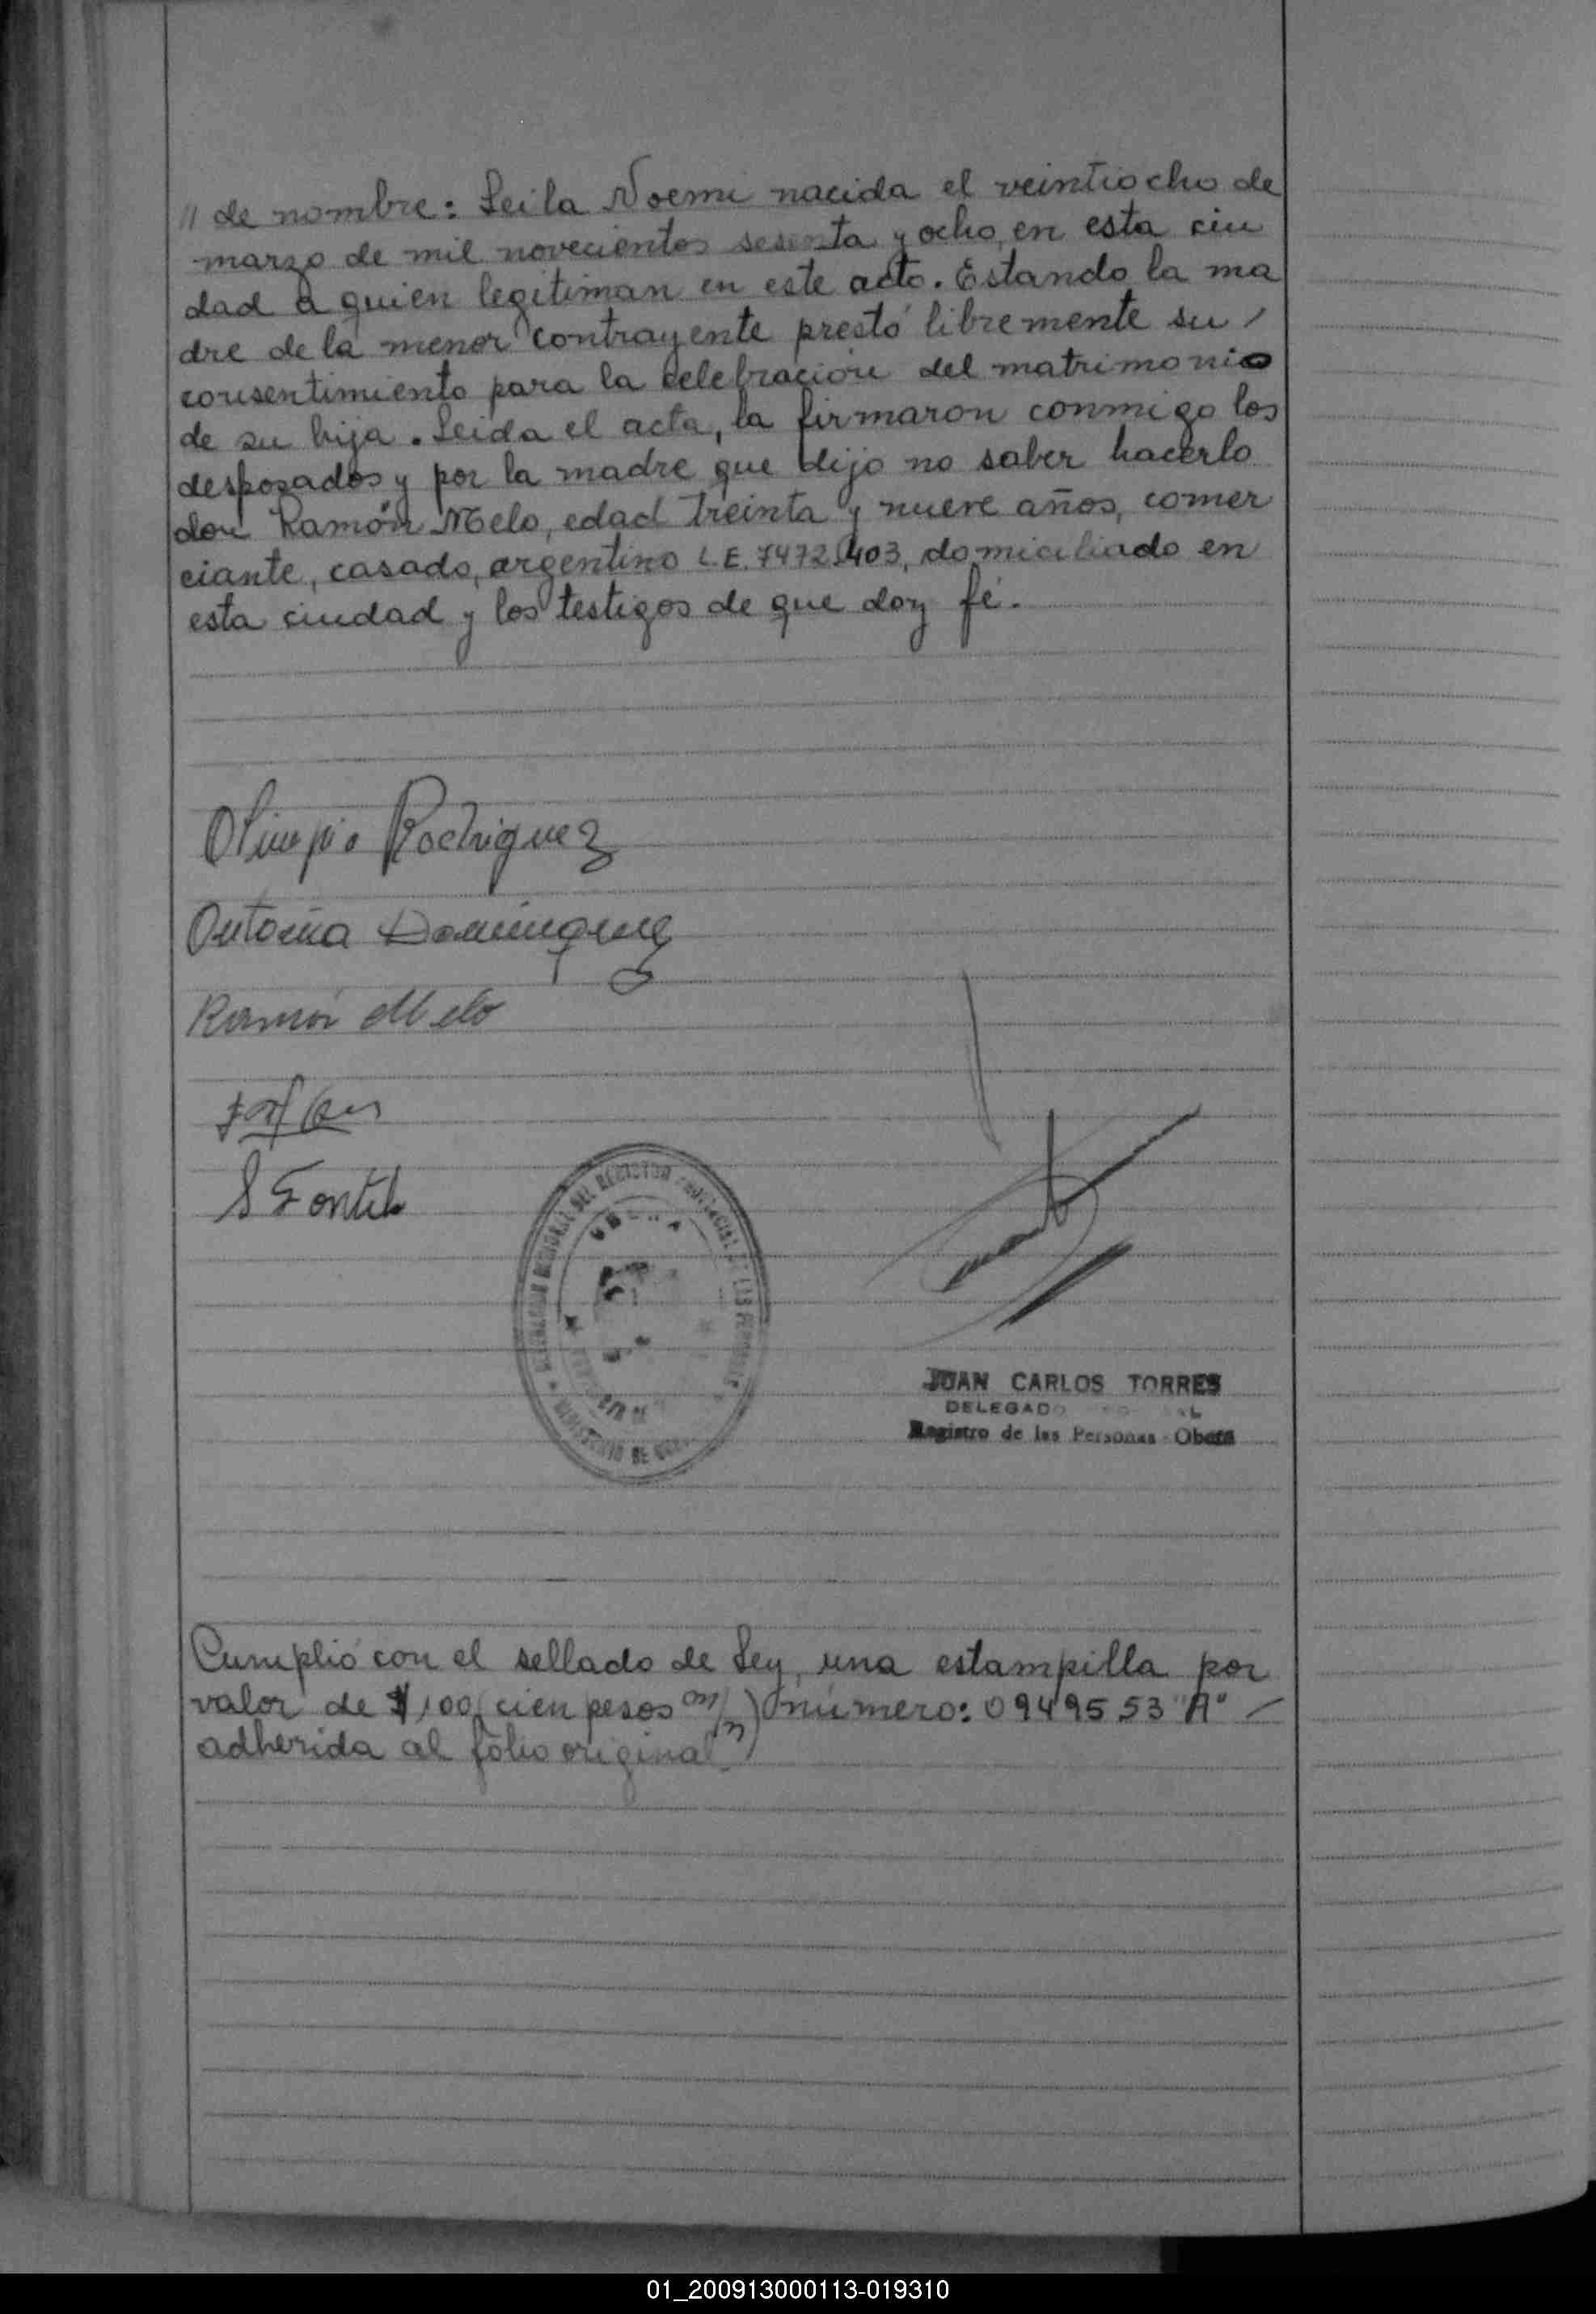 // de nombre: Leila Noemi nacida el veintiocho de
marzo de mil novecientos sesenta y ocho, en esta ciu
dad a quien legitiman en este acto. Estando la ma
dre de la menor contrayente prestó libremente su /
consentimiento para la celebración del matrimonio
de su hija. Leida el acta, la firmaron conmigo los
desposados y por la madre que dijo no saber hacerlo
don Ramón Melo, edad treinta y nueve años, comer
ciante, casado, argentino L.E. 7472.403, domiciliado en
esta ciudad y los testigos de que doy fé.
Olimpio Rodriguez
Antonia Dominguez
Ramón Melo
S Fontel
DEL REGISTRO PROVINCIAL DE LAS PERSONAS
MINISTERIO DE
JUAN CARLOS TORRES
DELEGADO
Registro de las Personas - Oberá
Cumplió con el sellado de Ley, una estampilla por
valor de $ 100 (cien pesos m/n) número: 0949553 "A" /
adherida al folio original.
01_200913000113-019310